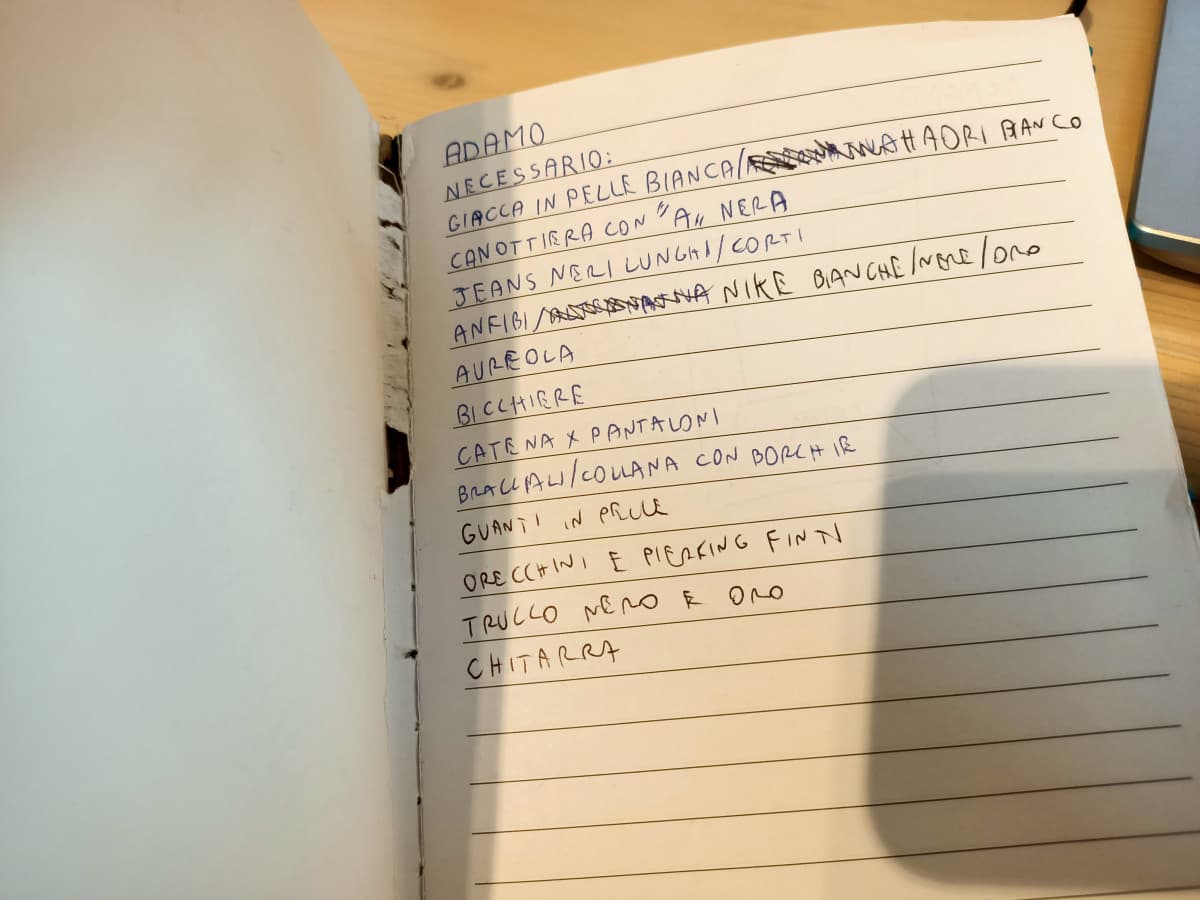 ADAMO
NECESSARIO:
GIACCA IN PELLE BIANCA/ HAORI BIANCO
CANOTTIERA CON "A„ NERA
JEANS NERI LUNGHI/CORTI
ANFIBI/ALTERNATIVA NIKE BIANCHE/NERE/ORO
AUREOLA
BICCHIERE
CATENA X PANTALONI
BRACCIALI/COLLANA CON BORCHIE
GUANTI IN PELLE
ORECCHINI E PIERKING FINTI
TRUCCO NERO E ORO
CHITARRA